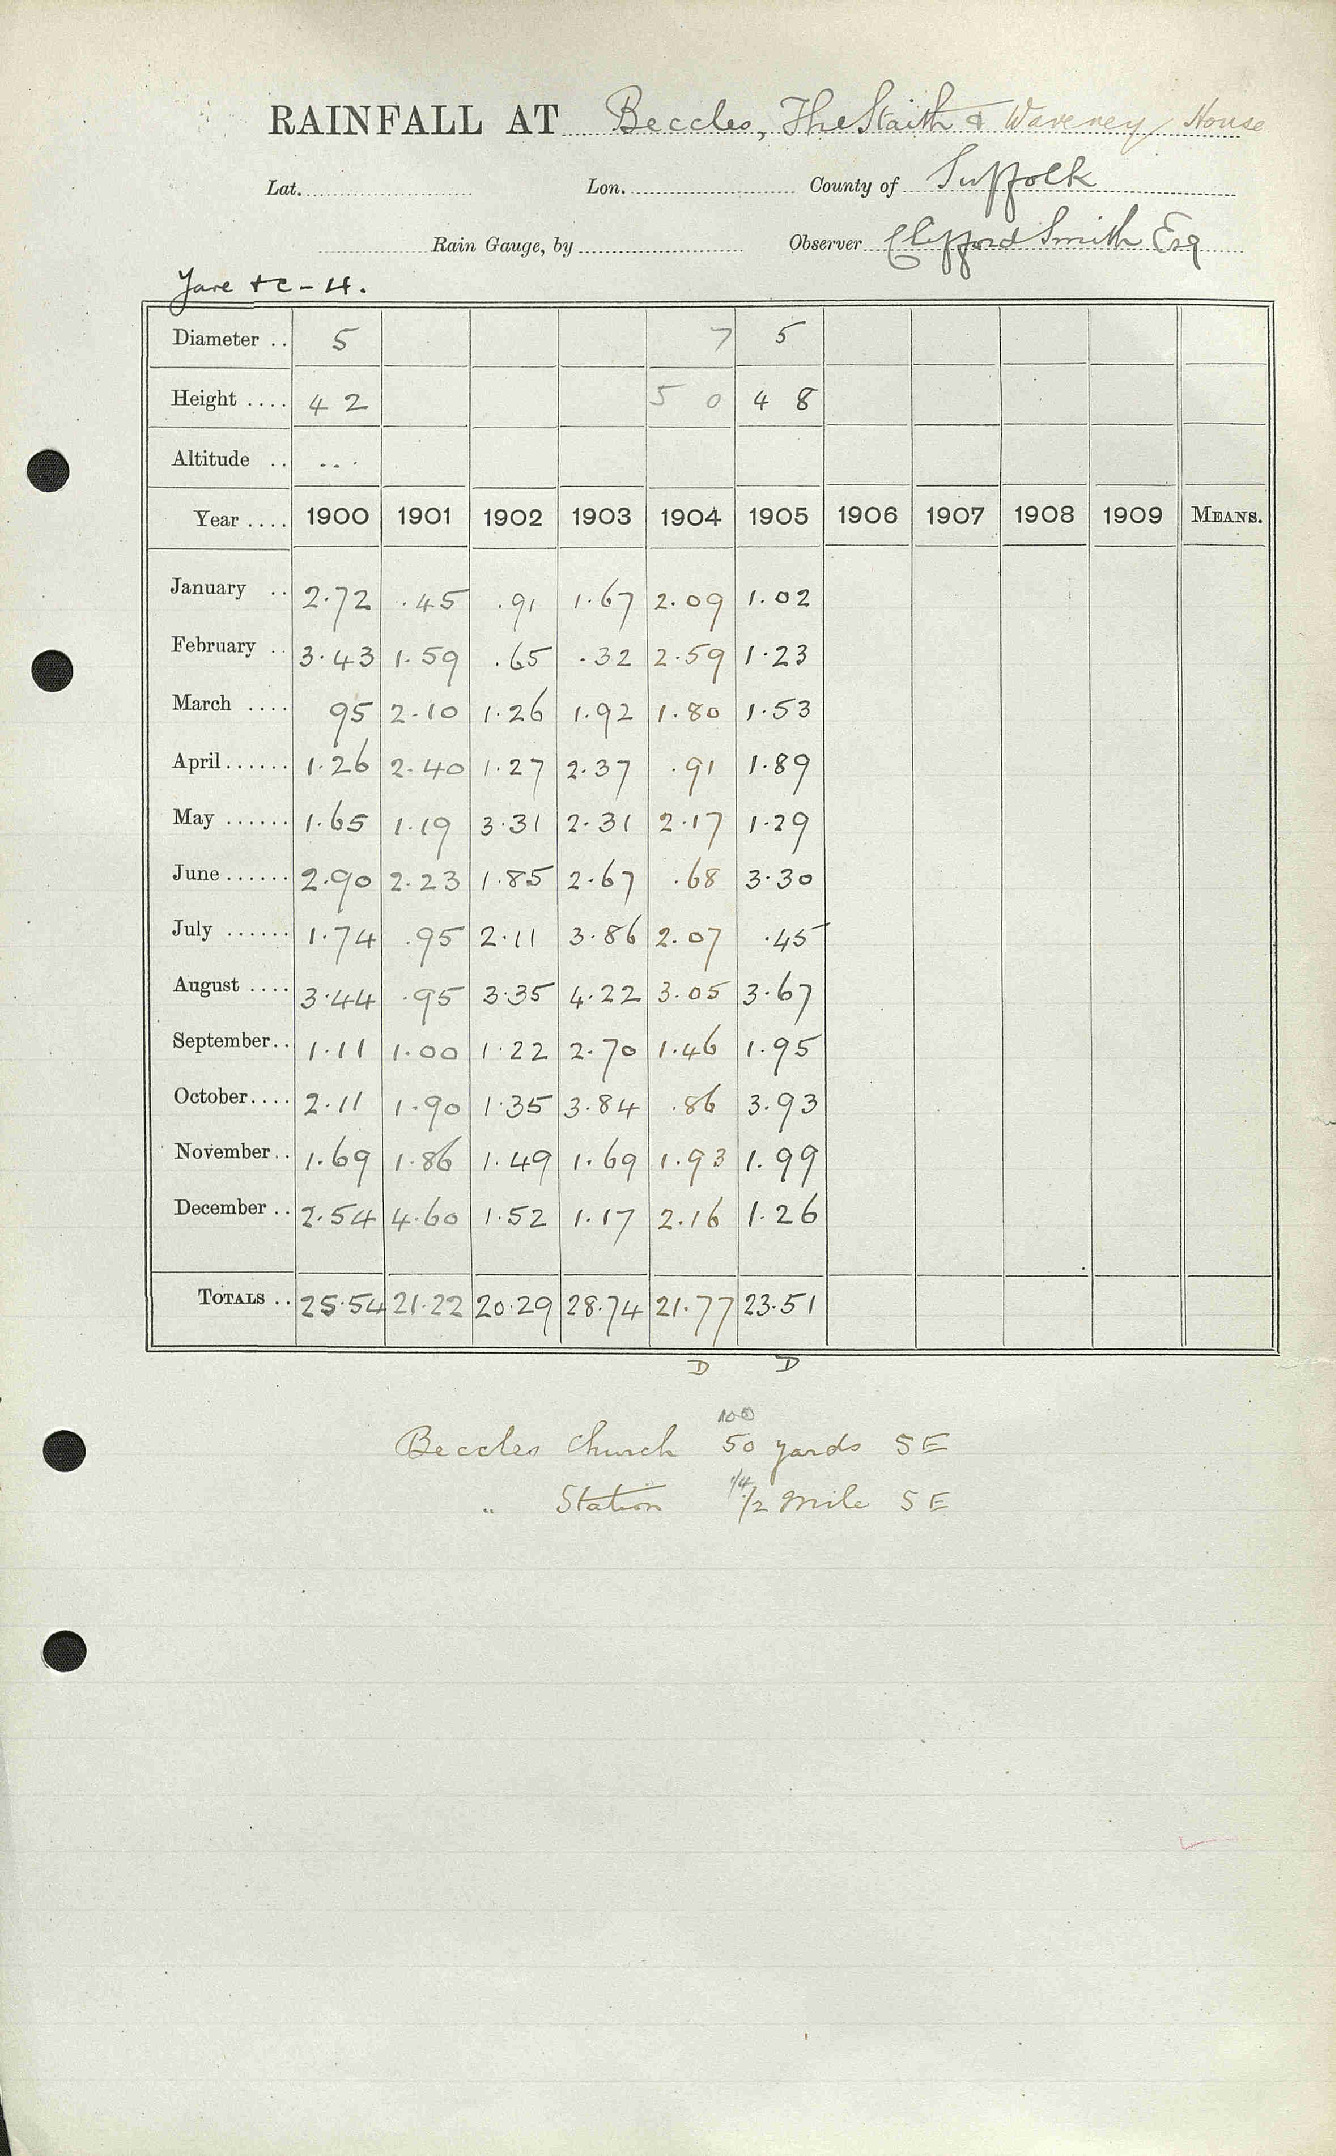 RAINFALL AT Beccles, The Staith & Waveney House
Lat. Lon. County of Suffolk
Rain Gauge, by Observer Clifford Smith Esq
Yare &c - 4.
Diameter .. 5 7 5
Height .... 4 2 5 0 4 8
Altitude .. ...
Year .... 1900 1901 1902 1903 1904 1905 1906 1907 1908 1909 MEANS.
January .. 2.72 .45 .91 1.67 2.09 1.02
February .. 3.43 1.59 .65 .32 2.59 1.23
March .... 95 2.10 1.26 1.92 1.80 1.53
April ...... 1.26 2.40 1.27 2.37 .91 1.89
May ...... 1.65 1.19 3.31 2.31 2.17 1.29
June ...... 2.90 2.23 1.85 2.67 .68 3.30
July ...... 1.74 .95 2.11 3.86 2.07 .45
August .... 3.44 .95 3.35 4.22 3.05 3.67
September .. 1.11 1.00 1.22 2.70 1.46 1.95
October .... 2.11 1.90 1.35 3.84 .86 3.93
November .. 1.69 1.86 1.49 1.69 1.93 1.99
December .. 2.54 4.60 1.52 1.17 2.16 1.26
TOTALS .. 25.54 21.22 20.29 28.74 21.77 23.51
D D
100
Beccles Church 50 yards SE
1/4
" Station 1/2 mile SE